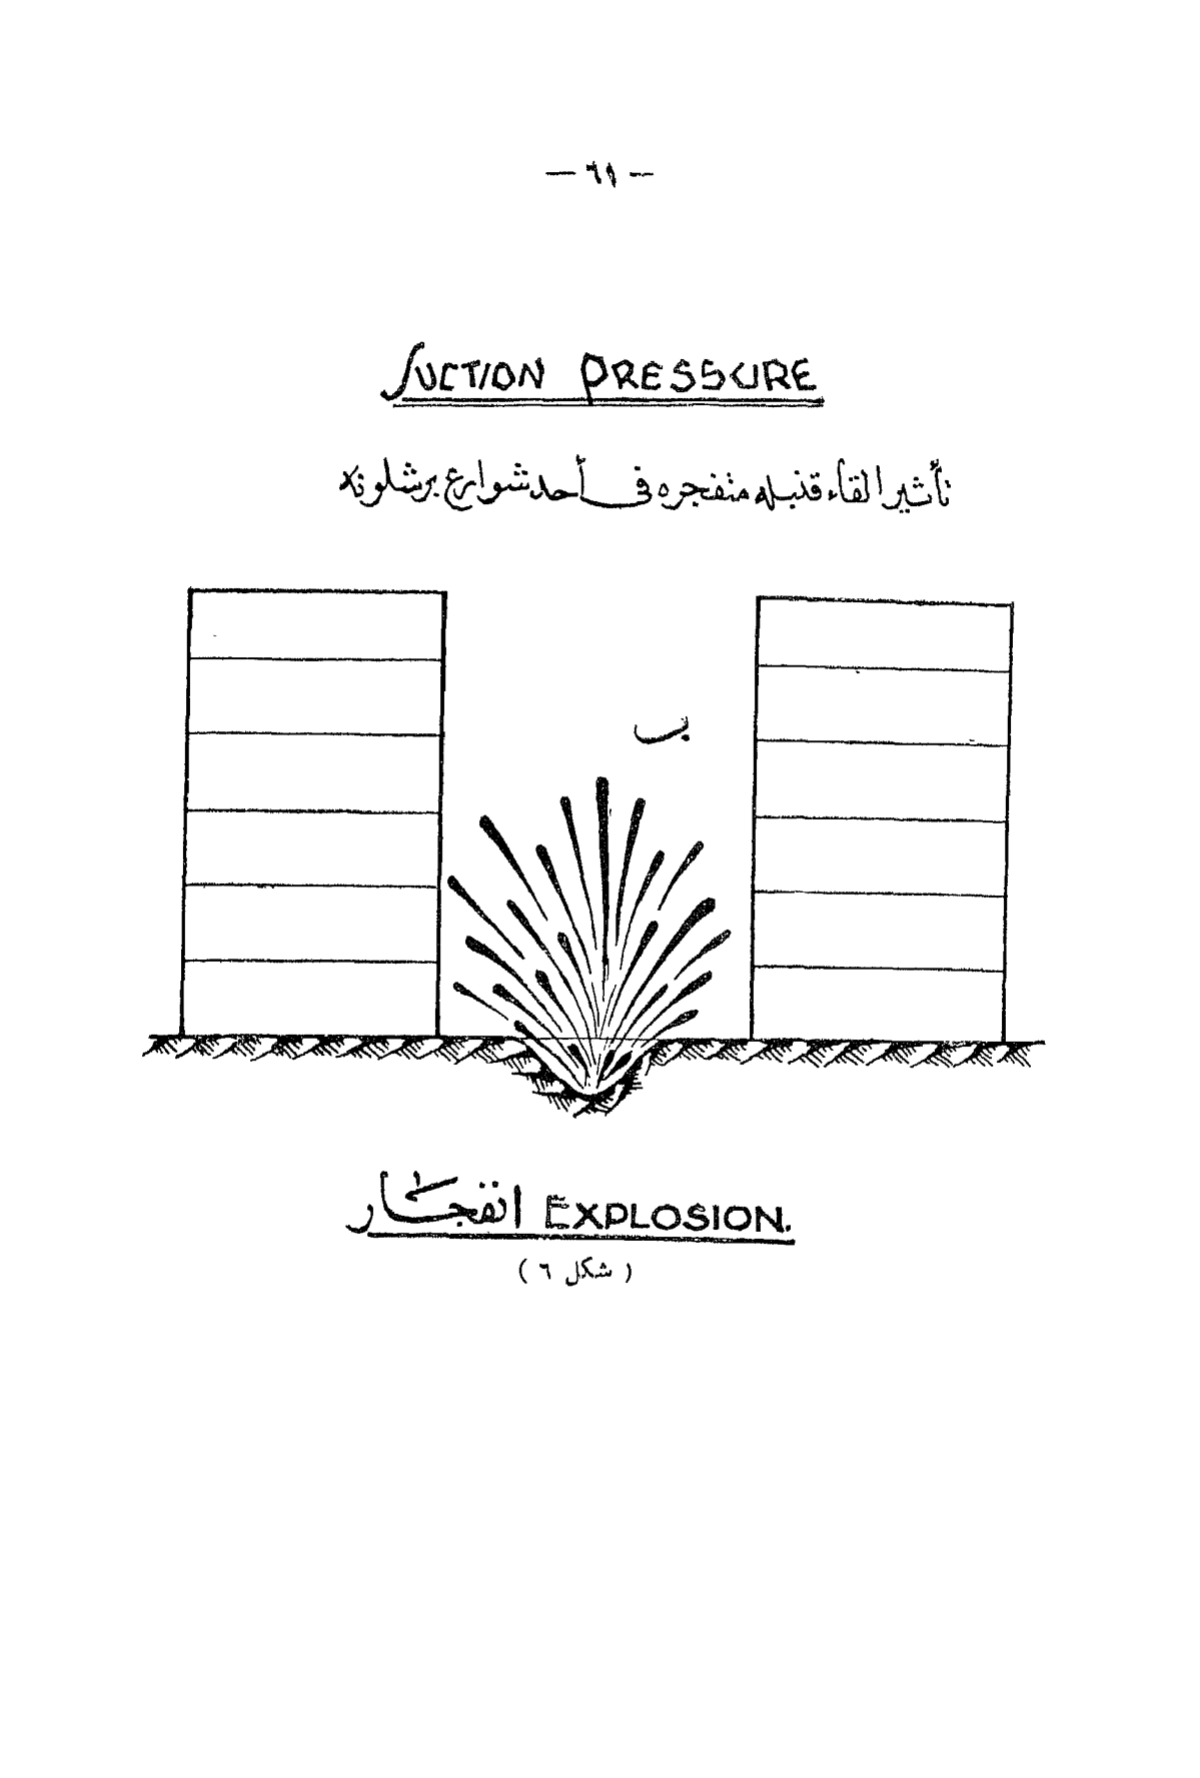 — ٦١ —
SUCTION PRESSURE
تأثير القاء قنبله متفجره فى أحد شوارع برشلونه
ب
انفجار EXPLOSION.
( شكل ٦ )